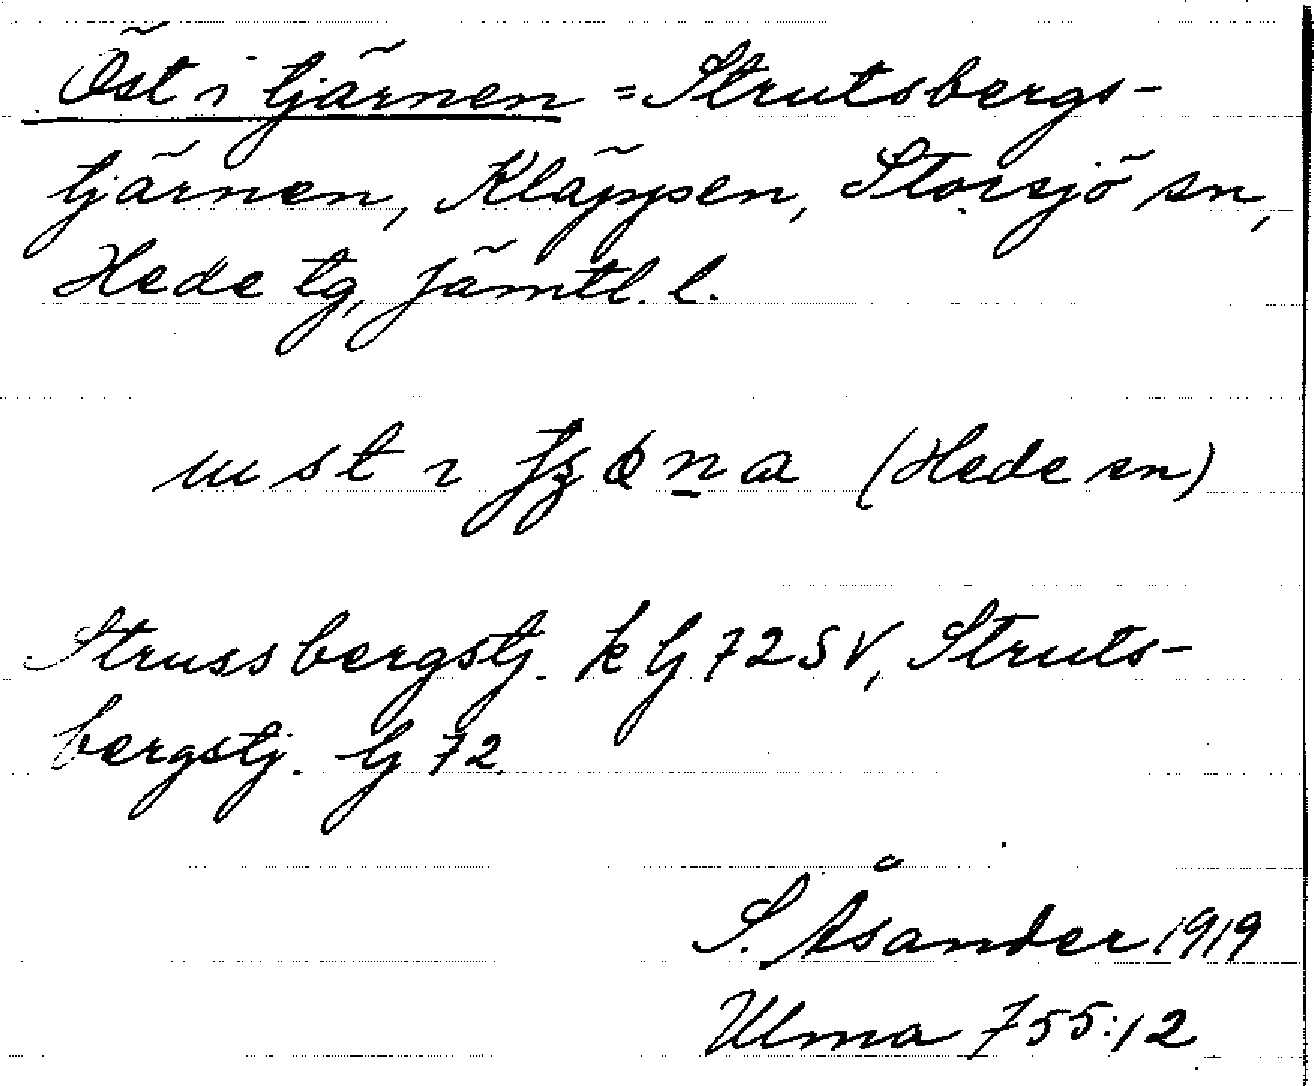 Öst i tjärnen = Strutsbergs-
tjärnen, Kläppen, Storsjö sn,
Hede tg, Jämtl. l.
st ı (Hede sn)
Strussbergstj. k lj 72 SV, Struts-
bergstj. lj 72
S. Åsander 1919
Ulma 755:12